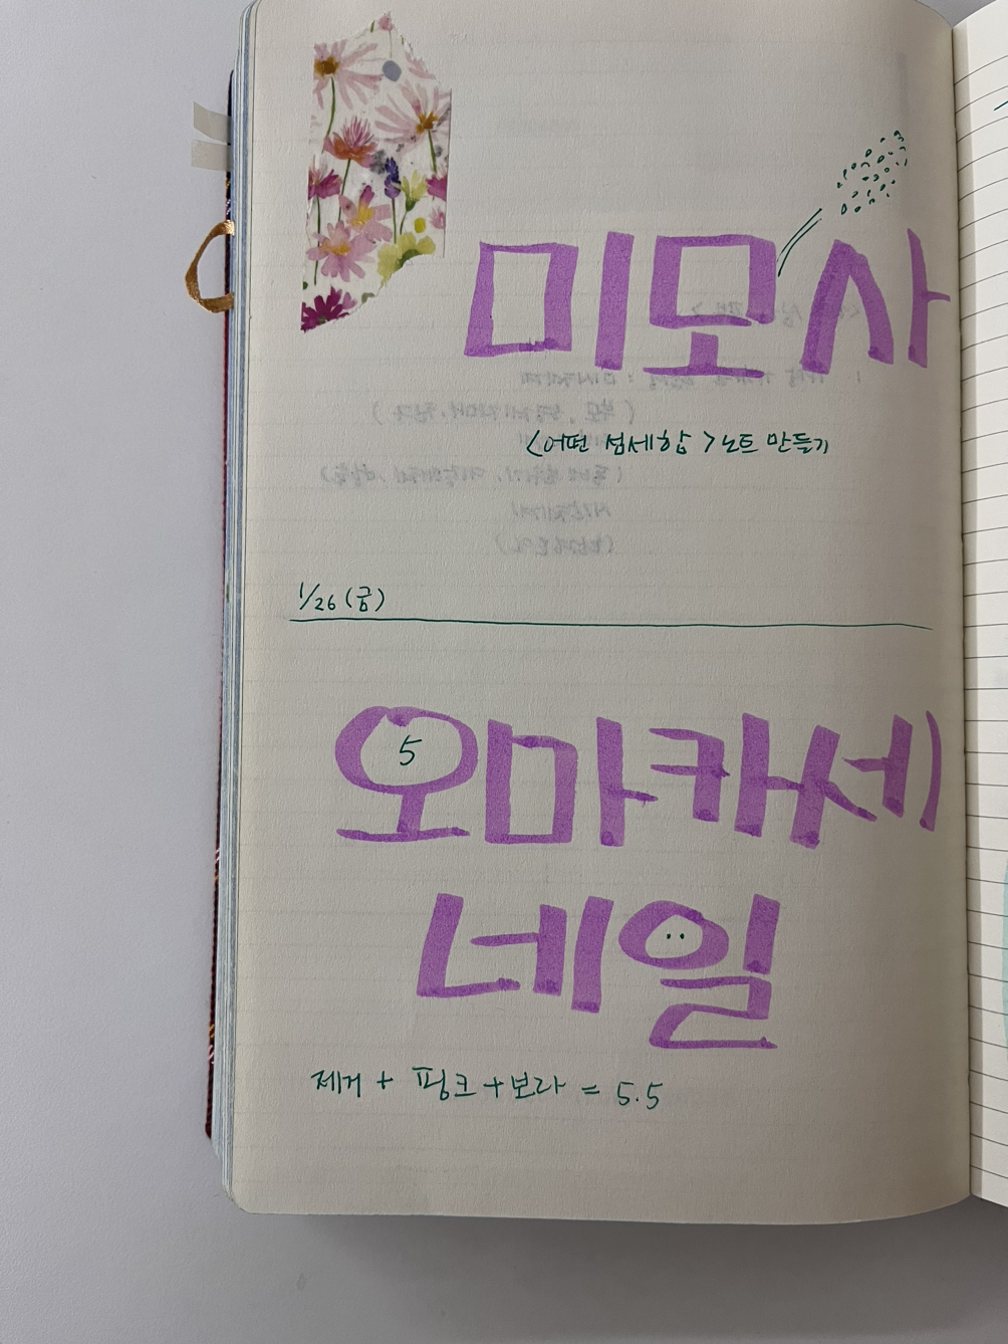 미모사
<어떤 섬세함> 노트 만들기
1/26 (금)
오마카세)
5
네일
제거 + 핑크 + 보라 = 5.5